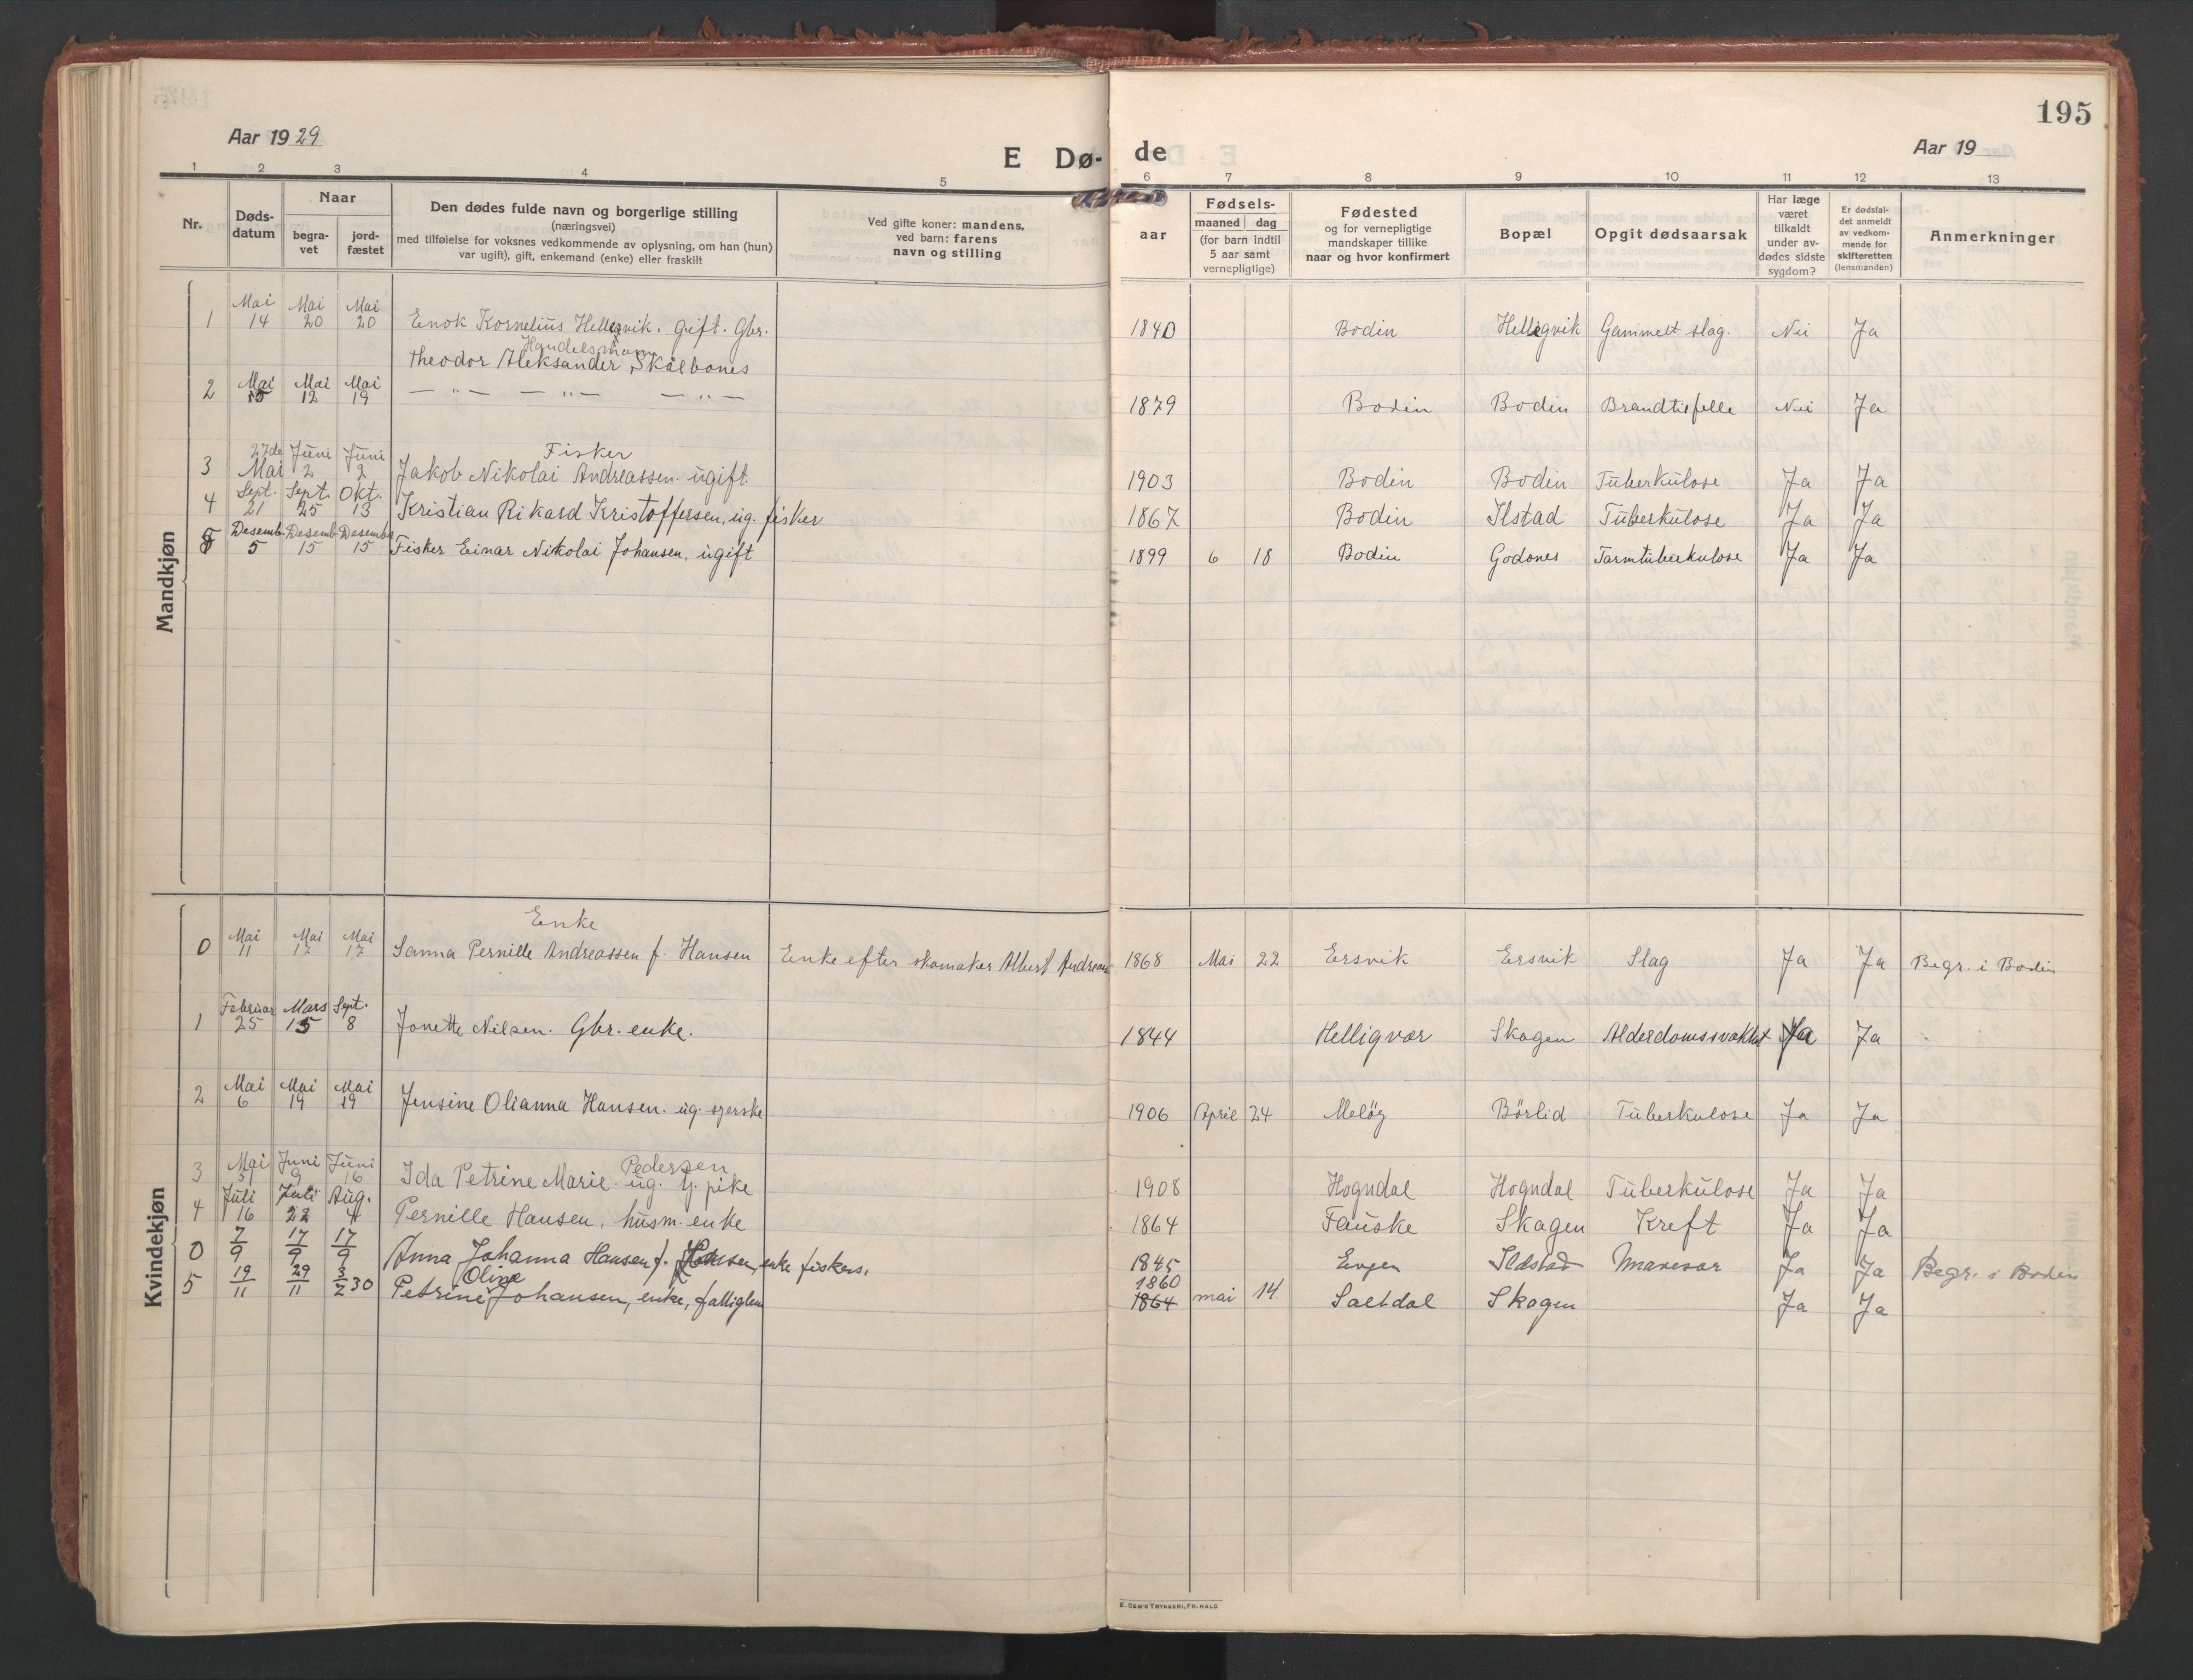 195
Aar 1929
E Dø- de
Aar 19
1 2 3 4 5 6 7 8 9 10 11 12 13
Nr.
Døds-
datum
Naar
begra-
vet
jord-
fæstet
Den dødes fulde navn og borgerlige stilling
(næringsvei)
med tilføielse for voksnes vedkommende av oplysning, om han (hun)
var ugift), gift, enkemand (enke) eller fraskilt
Ved gifte koner: mandens,
ved barn: farens
navn og stilling
aar
Fødsels-
maaned dag
(for barn indtil
5 aar samt
vernepligtige)
Fødested
og for vernepligtige
mandskaper tillike
naar og hvor konfirmert
Bopæl
Opgit dødsaarsak
Har læge
været
tilkaldt
under av-
dødes sidste
sygdom?
Er dødsfal-
det anmeldt
av vedkom-
mende for
skifteretten
(lensmanden)
Anmerkninger
Mandkjøn
Mai Mai Mai
1 14 20 20 Enok Kornelius Helligvik. gift. Gbr. 1840 Bodin Helligvik Gammelt slag. Nei Ja
Handelsmann
Theodor Aleksander Skålbones
Mai Mai Mai
2 15 12 19 — " — — " — — " — 1879 Bodin Bodin Brandtilfelle Nei Ja
27de Juni Juni Fisker
3 Mai 2 2 Jakob Nikolai Andreassen. ugift. 1903 Bodin Bodin Tuberkulose Ja Ja
Sept. Sept. Okt.
4 21 25 13 Kristian Rikard Kristoffersen, ug. fisker 1867 Bodin Ilstad Tuberkulose Ja Ja
Desemb. Desemb. Desemb.
5 5 15 15 Fisker Einar Nikolai Johansen, ugift 1899 6 18 Bodin Godønes Tarmtuberkulose Ja Ja
Kvindekjøn
Enke
Mai Mai Mai
0 11 17 17 Sanna Pernille Andreassen f. Hansen Enke efter skomaker Albert Andreas 1868 Mai 22 Ersvik Ersvik Slag Ja Ja Begr. i Bodin
Februar Mars Sept.
1 25 15 8 Jonette Nilsen. Gbr. enke. 1844 Helligvær Skagen Alderdomssvakhet Ja Ja
Mai Mai Mai
2 6 19 19 Jensine Olianna Hansen. ug. syerske 1906 April 24 Meløy Børlid Tuberkulose Ja Ja
Mai Juni Juni Pedersen
3 31 9 16 Ida Petrine Marie. ug. tj. pike 1908 Hogndal Hogndal Tuberkulose Ja Ja
Juli Juli Aug.
4 16 22 4 Pernille Hansen, husm. enke 1864 Fauske Skagen Kreft Ja Ja
0 7/9 17/9 17/9 Anna Johanna Hansen f. Hansen, enke fiskers. 1845 Evjen Ildstad Mavesår Ja Ja Begr. i Bodin
Oline 1860
5 19/11 29/11 3/2 30 Petrine Johansen, enke, fattiglem 1864 mai 14. Saltdal Skagen Ja Ja
E. SEM'S TRYKKERI, FR.HALD